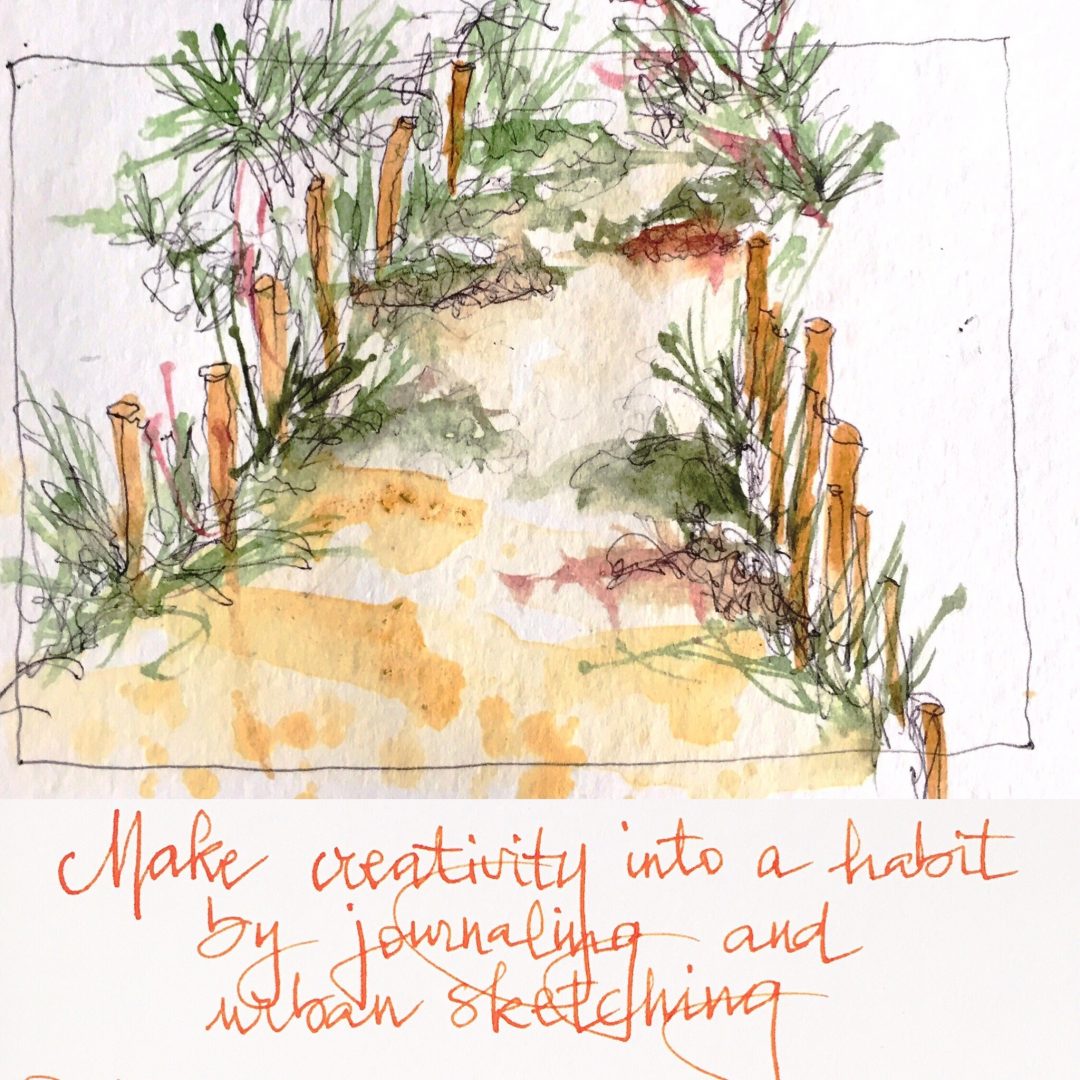 Make creativity into a habit
by journaling and
urban sketching